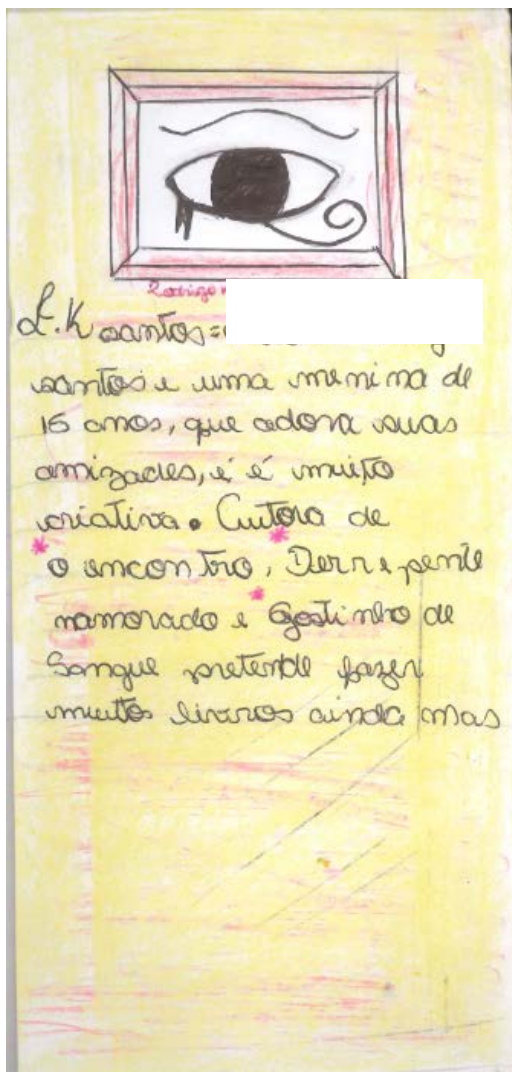 Rodrigo
L.K santos=
santos é uma menina de
15 anos, que adora suas
amizades, é é muito
criativa. Autora de
* o encontro, * Derrepente
namorado e * Gostinho de
Sangue pretende fazer
muitos livros ainda mas